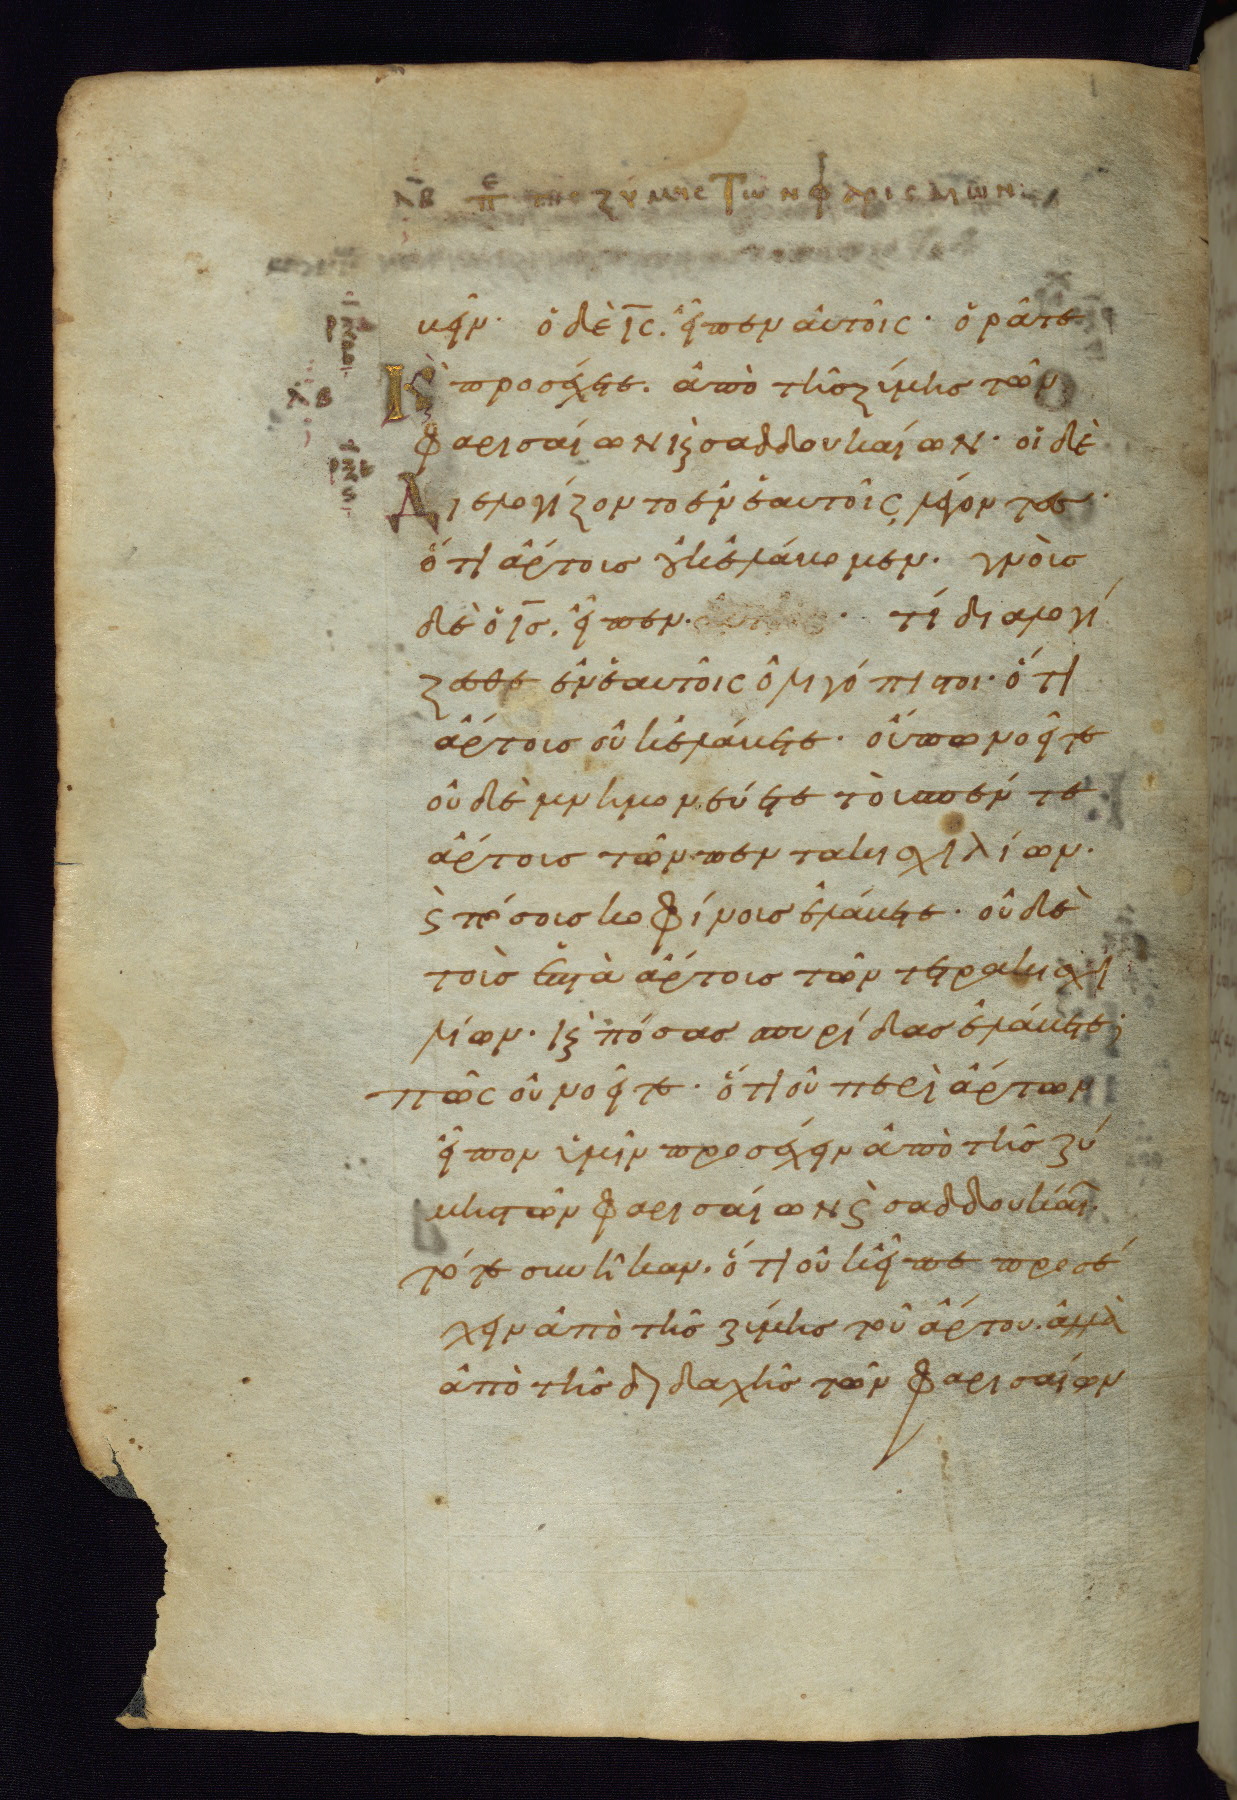 λβ πε της ζύμης Τῶν φαρισαίων
βεῖν· ὁ δὲ ις. εἶπεν αὐτοῖς· ὁρᾶτε
Κ προσέχετε. ἀπὸ τῆς ζύμης τῶν
φαρισαίων κ σαδδουκαίων· οἱ δὲ
Διελογίζοντο ἐν ἑαυτοῖς λέγοντες·
ὅτι ἄρτους οὐκ ἐλάβομεν. γνοὺς
δὲ ὁ ις. εἶπεν. αὐτοῖς· τί διαλογί
ζεσθε ἐν ἑαυτοῖς ὀλιγόπιστοι· ὅτι
ἄρτους οὐκ ἐλάβετε· οὔπω νοεῖτε
οὐδὲ μνημονεύετε τοὺς πέντε
ἄρτους τῶν πεντακισχιλίων.
κ πόσους κοφίνους ἐλάβετε· οὐδὲ
τοὺς ἑπτὰ ἄρτους τῶν τετρακισχι
λίων· κ πόσας σπυρίδας ἐλάβετε;
πῶς οὐ νοεῖτε· ὅτι οὐ περὶ ἄρτων
εἶπον ὑμῖν προσέχειν ἀπὸ τῆς ζύ
μης τῶν φαρισαίων κ σαδδουκαί
τότε συνῆκαν. ὅτι οὐκ εἶπε προσέ
χειν ἀπὸ τῆς ζύμης τοῦ ἄρτου. ἀλλὰ
ἀπὸ τῆς διδαχῆς τῶν φαρισαίων
λβ